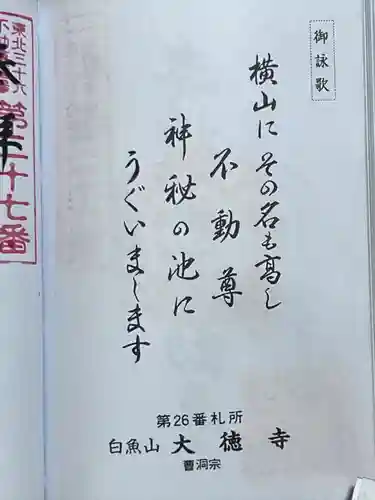 御詠歌
横山にその名も高し
不動尊
神秘の池に
うぐいまします
第26番札所
白魚山 大徳寺
曹洞宗
東北三十六
第二十七番